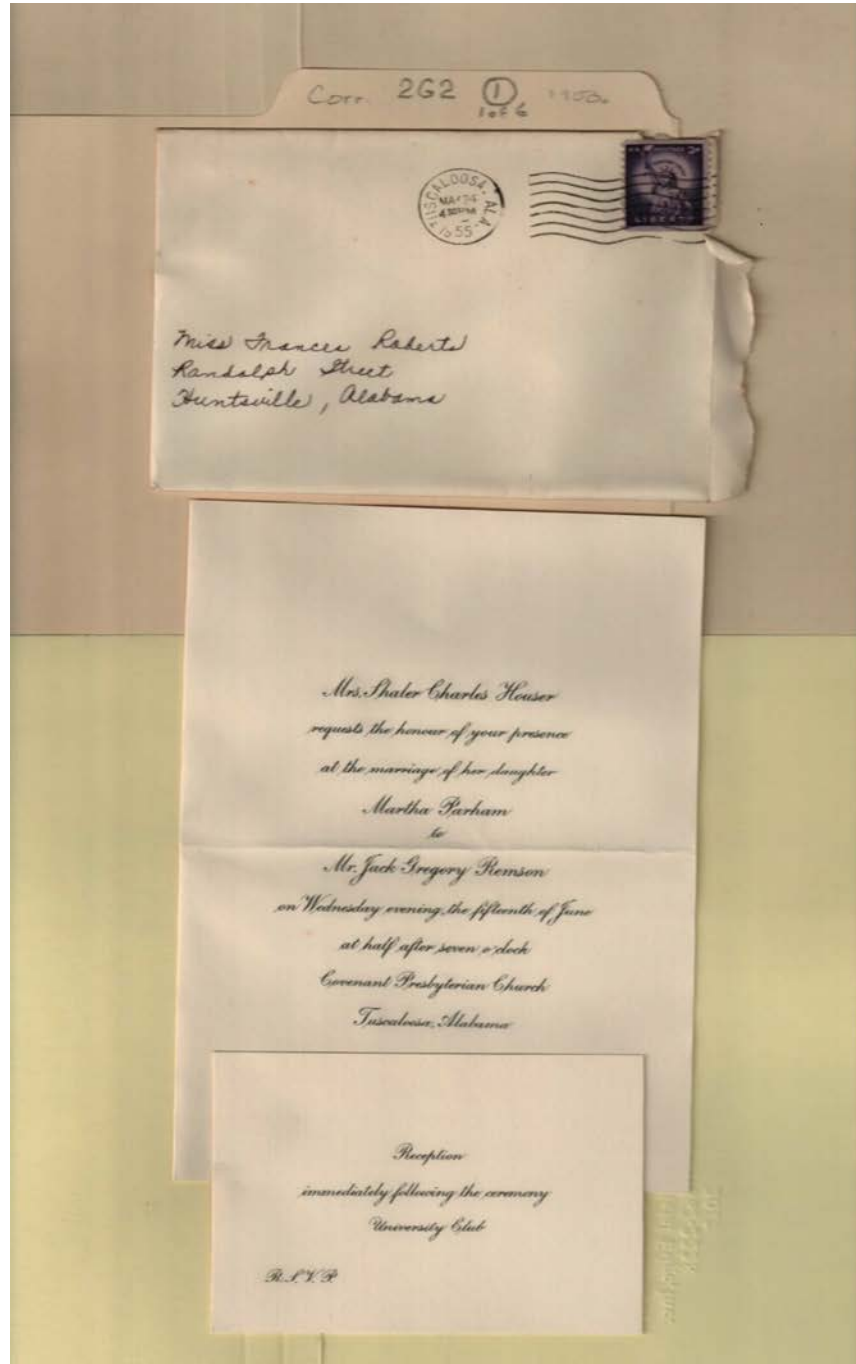 Corr. 2G2 1
1 of 6
TUSCALOOSA, ALA.
4 30 PM
1955
LIBERTY
Miss Frances Roberts
Randolph Street
Huntsville, Alabama
Mrs. Shaler Charles Houser
requests the honour of your presence
at the marriage of her daughter
Martha Parham
to
Mr. Jack Gregory Remson
on Wednesday evening, the fifteenth of June
at half after seven o'clock
Covenant Presbyterian Church
Tuscaloosa, Alabama
Reception
immediately following the ceremony
University Club
R.S.V.P.